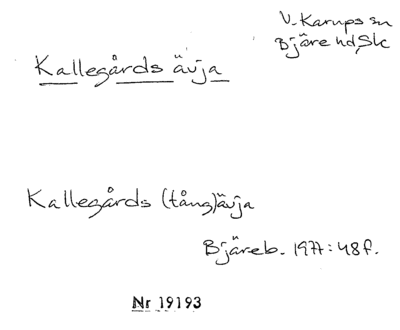 V. Karups sn
Bjäre hd, Sk
Kallegårds ävja
Kallegårds (tång)ävja
Bjäreb. 1977:48f.
Nr 19193